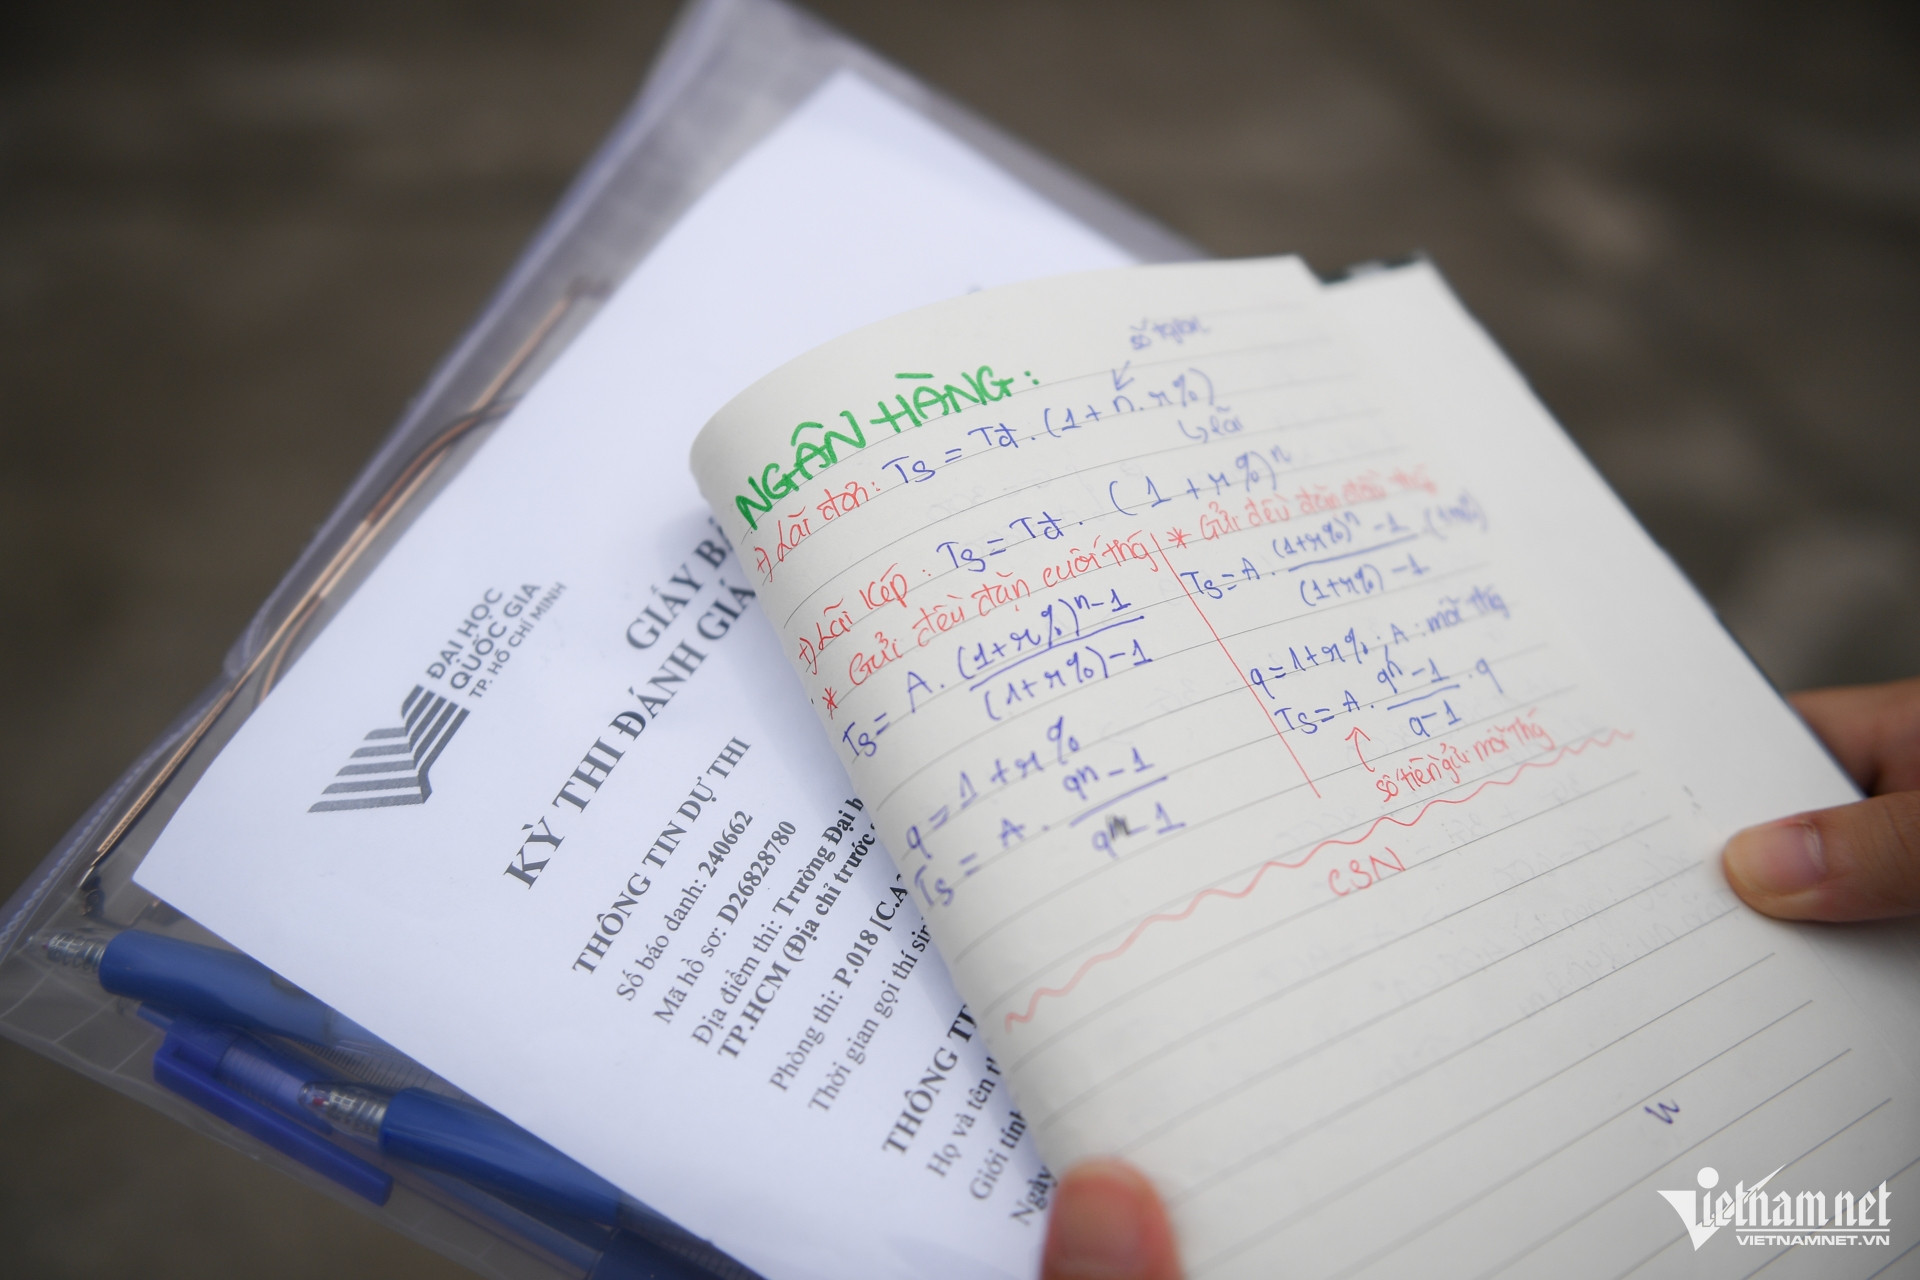 ĐẠI HỌC
QUỐC GIA
TP. HỒ CHÍ MINH
GIẤY BÁ
KỲ THI ĐÁNH GIÁ
THÔNG TIN DỰ THI
Số báo danh: 240662
Mã hồ sơ: D26828780
Địa điểm thi: Trường Đại b
TP.HCM (Địa chỉ trước
Phòng thi: P.018 [C.A
Thời gian gọi thí sin
THÔNG TI
Họ và tên th
Giới tính
Ngày
NGÂN HÀNG:
+) Lãi đơn: Ts = Tđ . (1 + n. r%)
↳ lãi
+) Lãi kép: Ts = Tđ . (1 + r%)^n
* Gửi đều đặn cuối thg
Ts = A . ((1+r%)^n - 1)/((1+r%) - 1)
q = 1 + r%
Ts = A . (q^n - 1)/(q - 1)
* Gửi đều đặn đầu thg
Ts = A . ((1+r%)^n - 1)/((1+r%) - 1) . (1+r%)
q = 1 + r% ; A: mỗi thg
Ts = A . (q^n - 1)/(q - 1) . q
số tiền gửi mỗi thg
CSN
Vietnamnet
VIETNAMNET.VN